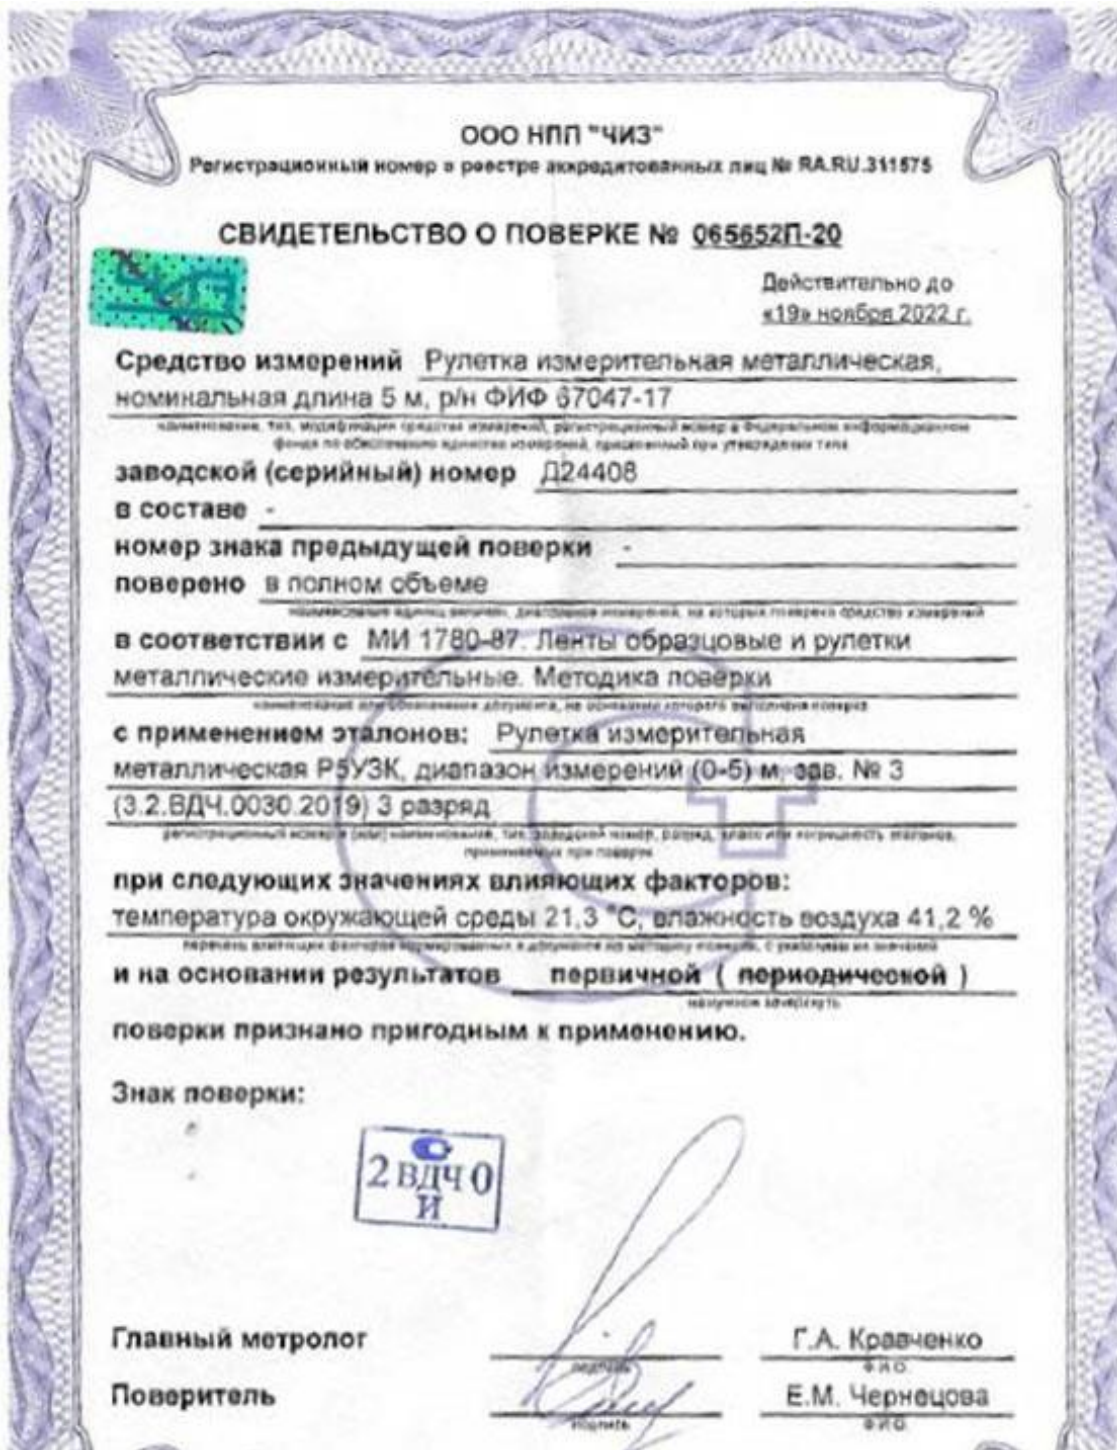 ООО НПП "ЧИЗ"
Регистрационный номер в реестре аккредитованных лиц № RA.RU.311575
СВИДЕТЕЛЬСТВО О ПОВЕРКЕ № 065652П-20
ЧИЗ
Действительно до
«19» ноября 2022 г.
Средство измерений Рулетка измерительная металлическая,
номинальная длина 5 м, р/н ФИФ 67047-17
наименование, тип, модификация средства измерений, регистрационный номер в Федеральном информационном
фонде по обеспечению единства измерений, присвоенный при утверждении типа
заводской (серийный) номер Д24408
в составе -
номер знака предыдущей поверки -
поверено в полном объеме
наименование единиц величин, диапазонов измерений, на которых поверено средство измерений
в соответствии с МИ 1780-87. Ленты образцовые и рулетки
металлические измерительные. Методика поверки
наименование или обозначение документа, на основании которого выполнена поверка
с применением эталонов: Рулетка измерительная
металлическая Р5УЗК, диапазон измерений (0-5) м, зав. № 3
(3.2.ВДЧ.0030.2019) 3 разряд
регистрационный номер и (или) наименование, тип, заводской номер, разряд, класс или погрешность эталонов,
применяемых при поверке
при следующих значениях влияющих факторов:
температура окружающей среды 21,3 °С, влажность воздуха 41,2 %
перечень влияющих факторов нормированных в документе на методику поверки, с указанием их значений
и на основании результатов первичной ( периодической )
ненужное зачеркнуть
поверки признано пригодным к применению.
Знак поверки:
2 ВДЧ 0
И
Главный метролог Г.А. Кравченко
подпись Ф.И.О.
Поверитель Е.М. Чернецова
подпись Ф.И.О.